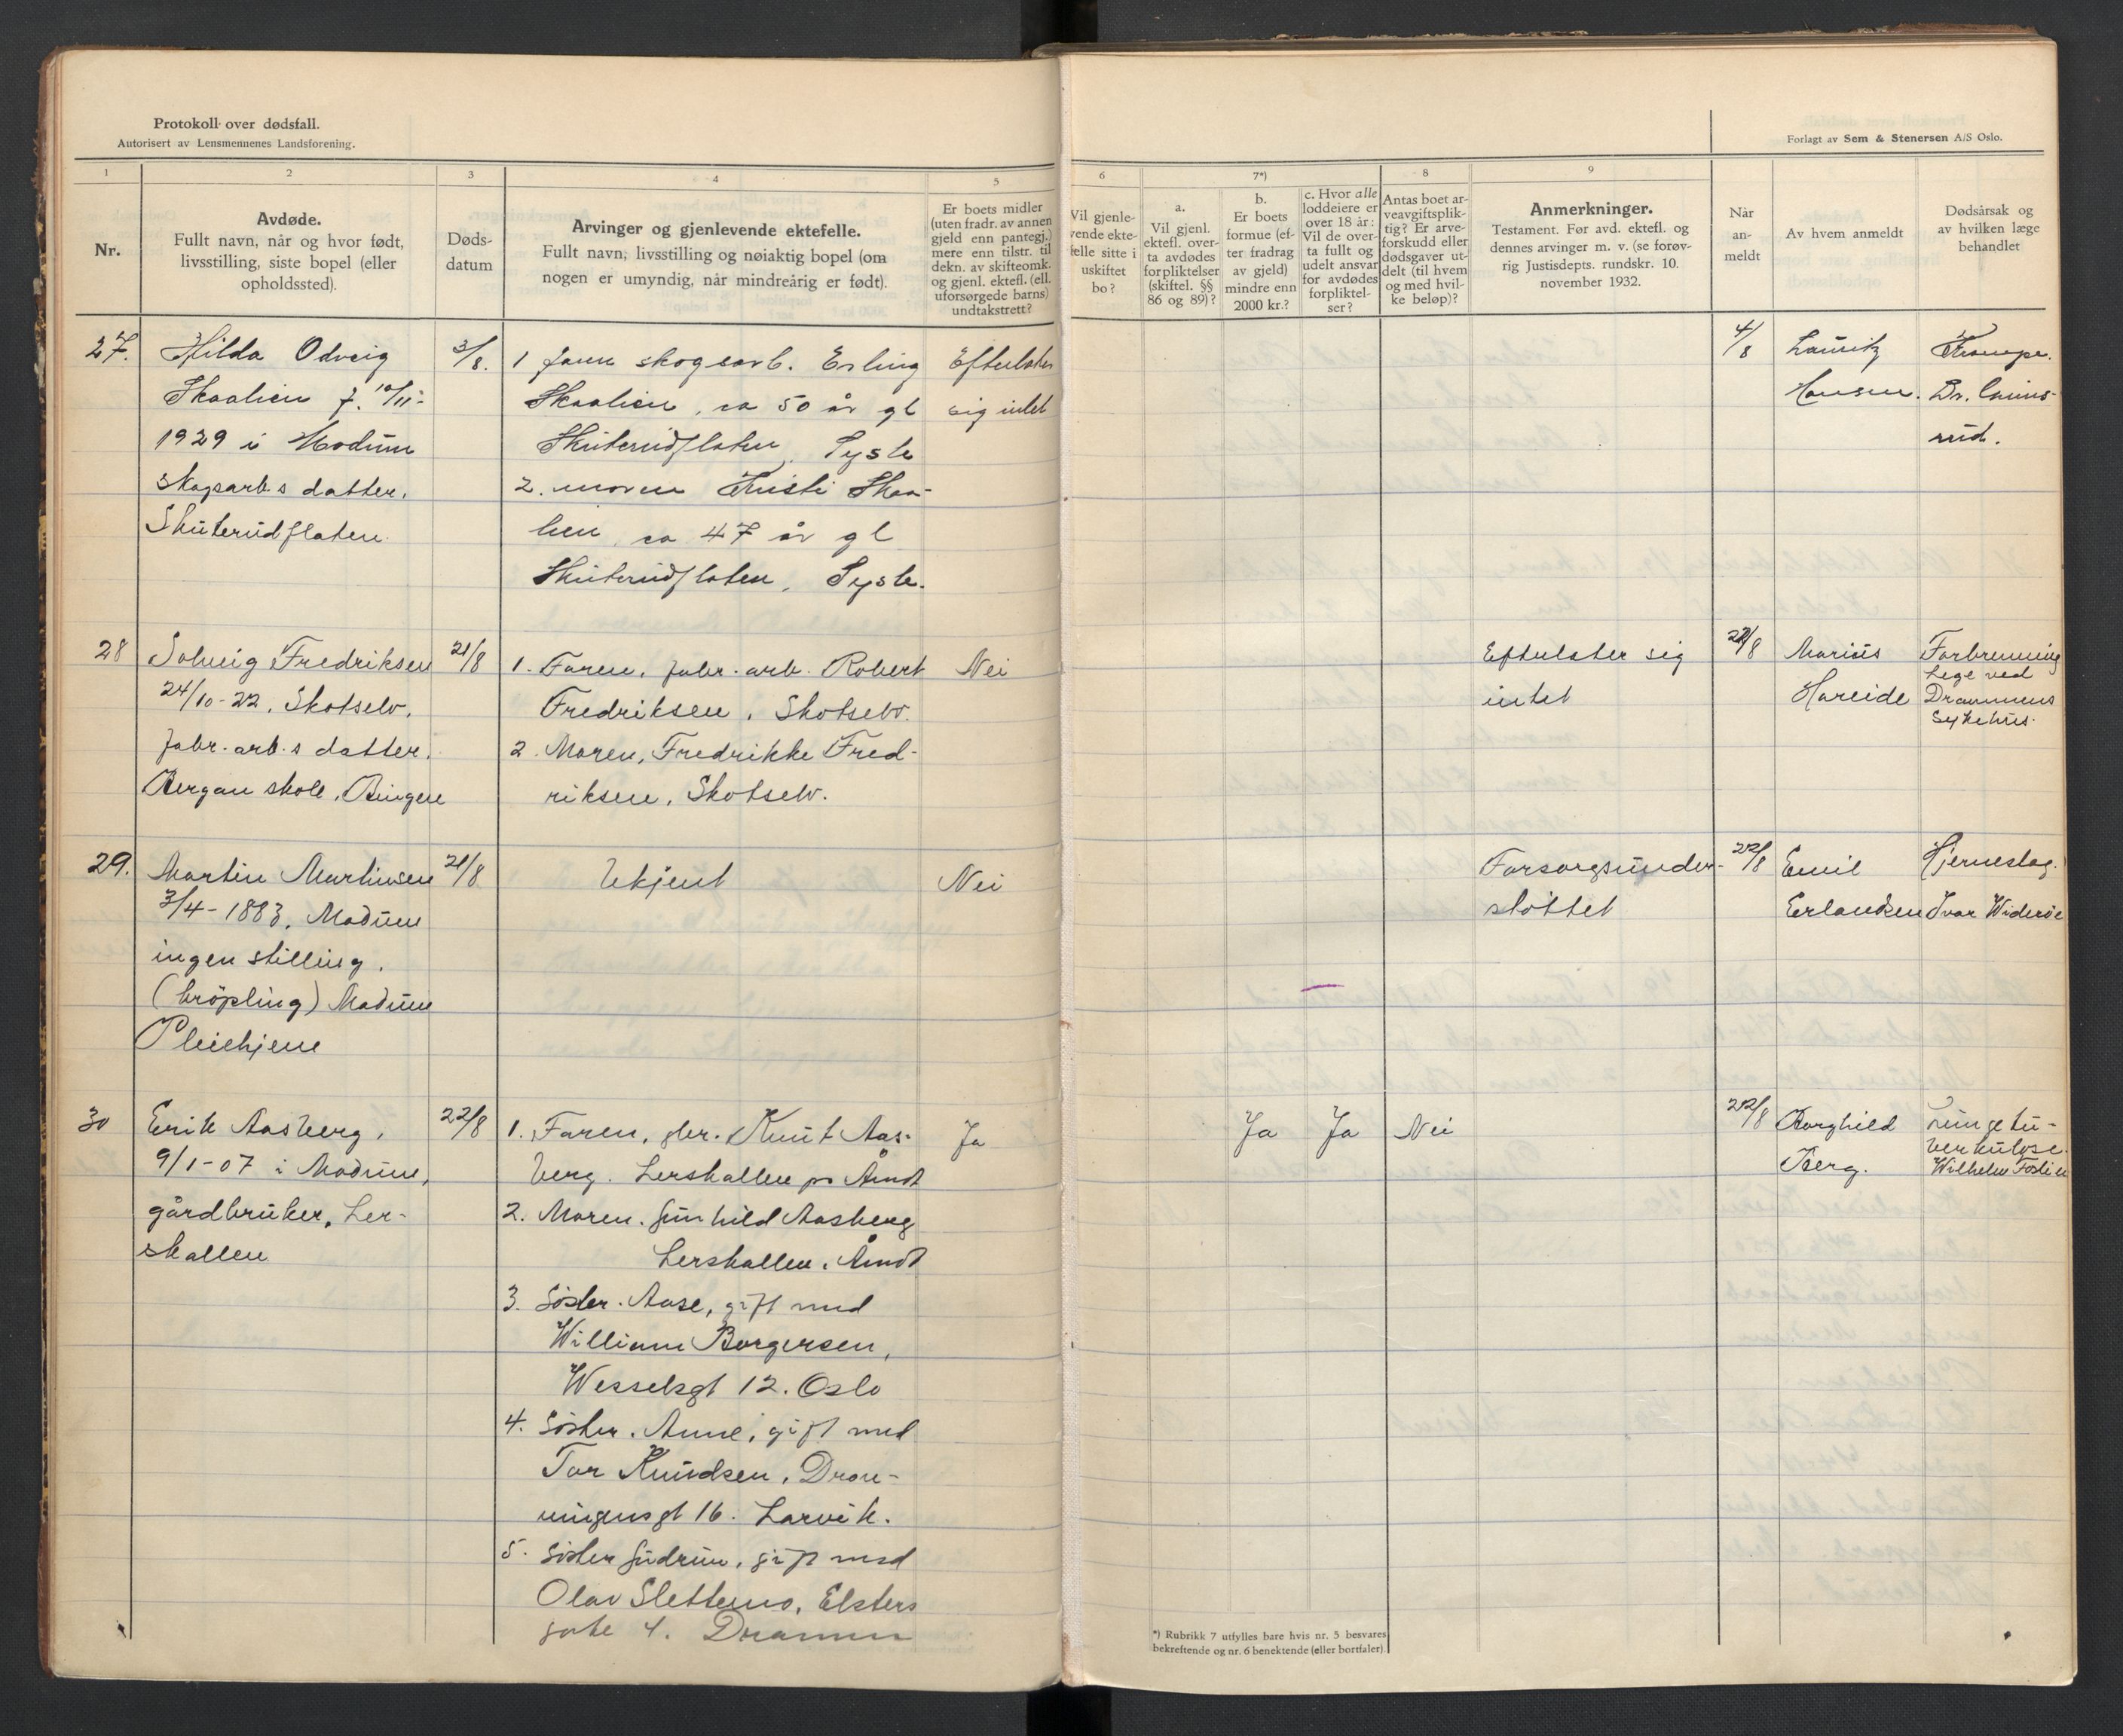 Protokoll over dødsfall.
Autorisert av Lensmennenes Landsforening.
1
2
3
4
5
Nr.
Avdøde.
Fullt navn, når og hvor født,
livsstilling, siste bopel (eller
opholdssted).
Døds-
datum
Arvinger og gjenlevende ektefelle.
Fullt navn, livsstilling og nøiaktig bopel (om
nogen er umyndig, når mindreårig er født).
Er boets midler
(uten fradr. av annen
gjeld enn pantegj.)
mere enn tilstr. til
dekn. av skifteomk.
og gjenl. ektefl. (ell.
uforsørgede barns)
undtakstrett?
27.
Hilda Odveig
Skaalien f. 10/11-
1929 i Modum
skogsarb.s datter.
Skuterudflaten.
3/8.
1 faren skogsarb. Erling
Skaalien, ca 50 år gl
Skuterudflaten, Sysle
2. moren Kristi Skaa-
lien ca 47 år gl
Skuterudflaten, Sysle.
Efterlater
sig intet
28
Solveig Fredriksen
24/10-22, Skotselv.
fabr.arb.s datter.
Bergan skole, Bingen
21/8
1. Faren, fabr.arb. Robert
Fredriksen, Skotselv.
2. Moren, Fredrikke Fred-
riksen, Skotselv.
Nei
29.
Martin Martinsen
3/4-1883, Modum
ingen stilling.
(krøpling) Modum
Pleiehjem
21/8
Ukjent
Nei
30
Erik Aasberg,
9/1-07 i Modum,
gårdbruker, Ler-
skallen
22/8
1. Faren, gbr. Knut Aas-
berg. Lerskallen pr Åmot
2. Moren. Gunhild Aasberg
Lerskallen, Åmot
3. Søster. Aase, gift med
William Borgersen,
Wesselsgt 12. Oslo
4. Søster. Anne, gift med
Tor Knudsen, Dron-
ningensgt 16. Larvik.
5. Søster Gudrun, gift med
Olav Slettemo, Elsters
gate 4. Drammen
Ja
Forlagt av Sem & Stenersen A/S Oslo.
6
7*)
8
9
Vil gjenle-
vende ekte-
felle sitte i
uskiftet
bo?
a.
Vil gjenl.
ektefl. over-
ta avdødes
forpliktelser
(skiftel. §§
86 og 89)?
b.
Er boets
formue (ef-
ter fradrag
av gjeld)
mindre enn
2000 kr.?
c. Hvor alle
loddeiere er
over 18 år:
Vil de over-
ta fullt og
udelt ansvar
for avdødes
forpliktel-
ser?
Antas boet ar-
veavgiftsplik-
tig? Er arve-
forskudd eller
dødsgaver ut-
delt (til hvem
og med hvil-
ke beløp)?
Anmerkninger.
Testament. Før avd. ektefl. og
dennes arvinger m. v. (se forøv-
rig Justisdepts. rundskr. 10.
november 1932.
Når
an-
meldt
Av hvem anmeldt
Dødsårsak og
av hvilken læge
behandlet
4/8
Lauritz
Hansen.
Krampe.
Dr. Caius-
rud.
Efterlater sig
intet
22/8
Marius
Hareide
Forbrenning
Lege ved
Drammens
Sykehus.
Forsorgsunder-
støttet
22/8
Emil
Erlandsen
Hjerneslag.
Ivar Widerøe
Ja
Ja
Nei
22/8
Borghild
Berg.
Lungetu-
berkulose.
Wilhelm Foslien
*) Rubrikk 7 utfylles bare hvis nr. 5 besvares
bekreftende og nr. 6 benektende (eller bortfaler).